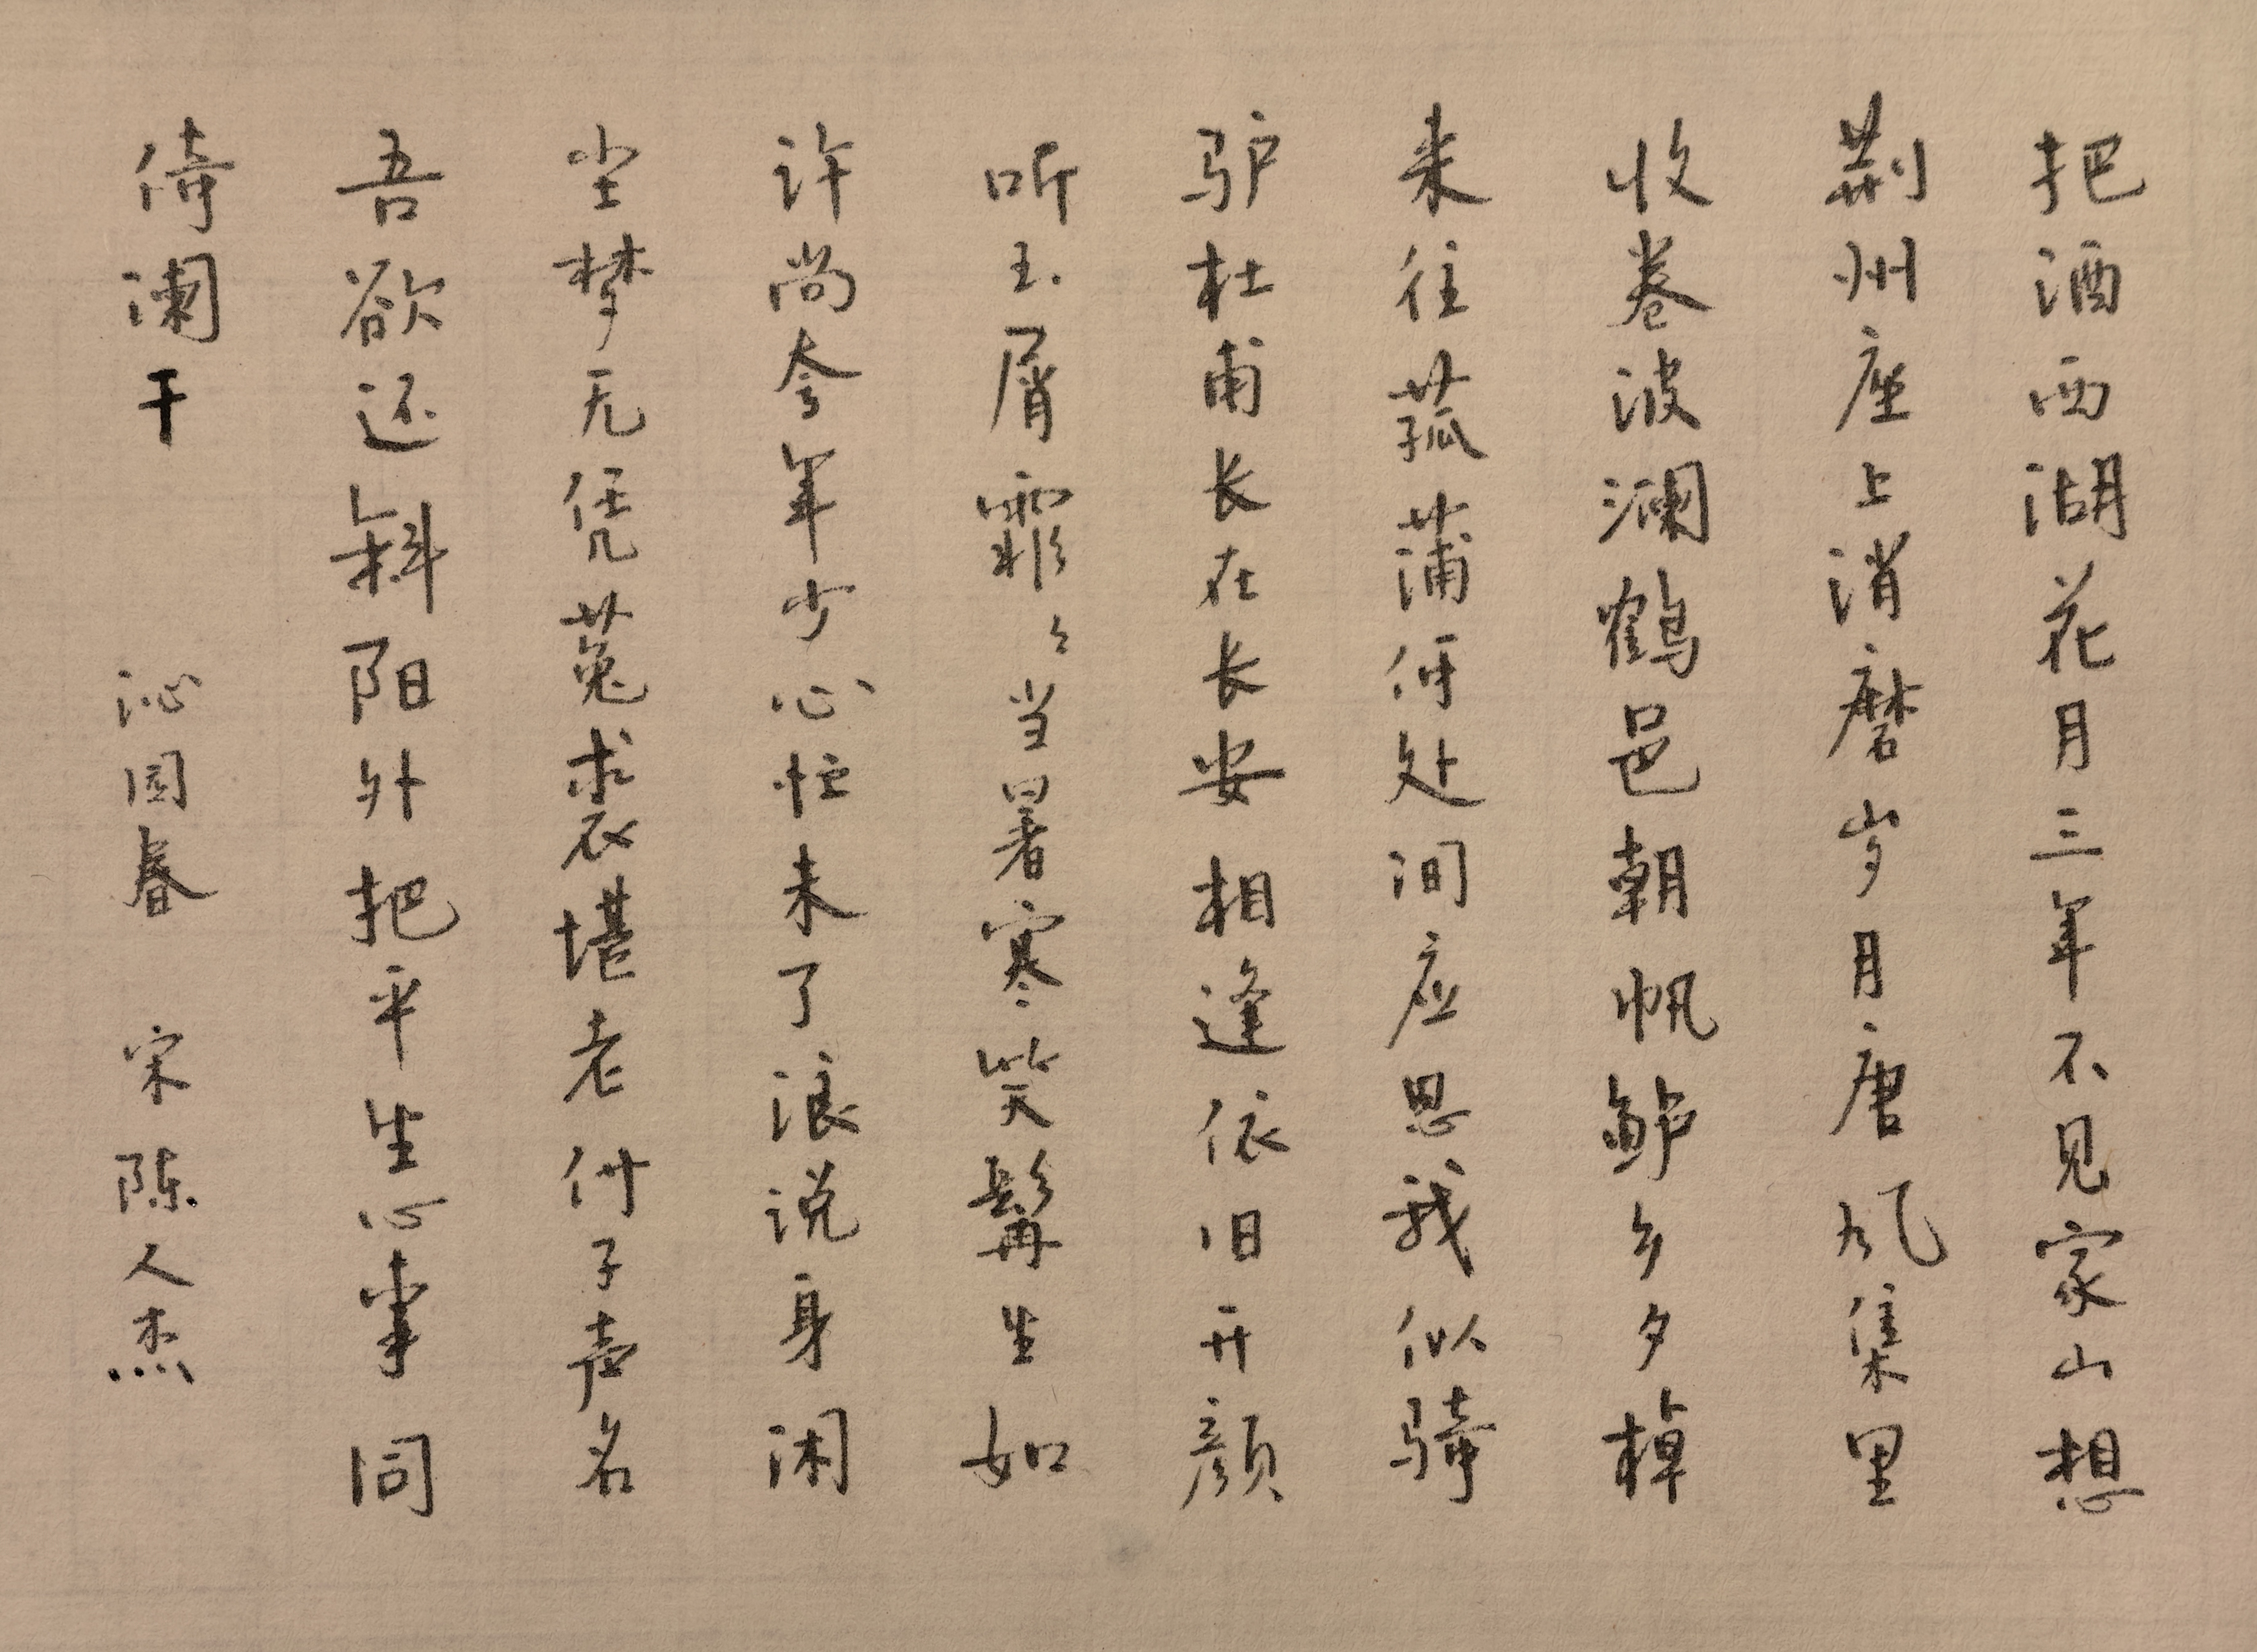 把酒西湖花月三年不见家山想
荆州座上消磨岁月唐风集里
收卷波澜鹤邑朝帆鲈乡夕棹
来往菰蒲何处间应思我似骑
驴杜甫长在长安相逢依旧开颜
听玉屑霏々当暑寒笑髯生如
许尚夸年少心忙未了浪说身闲
尘梦无凭菟裘堪老付子声名
吾欲还斜阳外把平生心事同
倚阑干 沁园春 宋 陈人杰